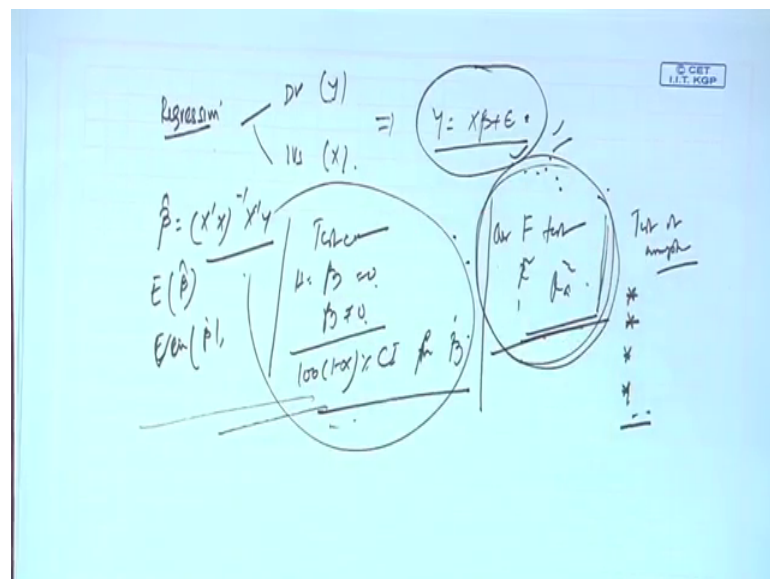 © CET
I.I.T. KGP
Regression
DV (y)
IVs (X).
⇒ y = Xβ+ε
β̂ = (X'X)⁻¹X'y
E(β̂)
Cov(β̂)
Test
H: β = 0
β ≠ 0
100(1-α)% CI for β̂
F test
R² R²ₐ
Test of
*
*
*
*